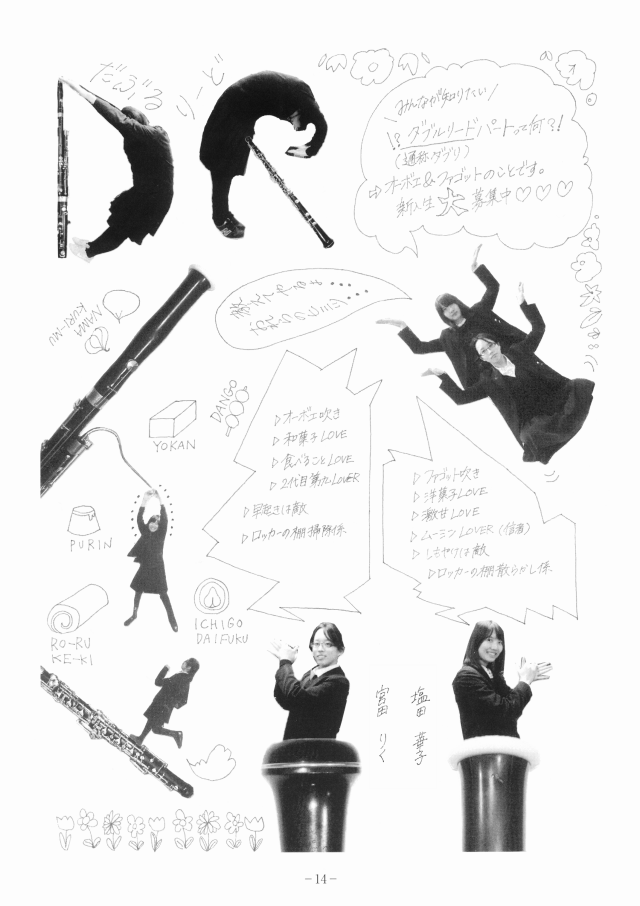 だぶる
りーど
みんなが知りたい
!?ダブルリードパートって何?!
(通称・ダブリ)
⇨オーボエ&ファゴットのことです。
新入生大募集中♡♡♡
NAMA
KURI-MU
DANGO
YOKAN
PURIN
ICHIGO
DAIFUKU
RO-RU
KE-KI
▷オーボエ吹き
▷和菓子LOVE
▷食べることLOVE
▷早起きは敵
▷ロッカーの棚掃除係
▷ファゴット吹き
▷洋菓子LOVE
▷激甘LOVE
▷ムーミンLOVER(信者)
▷しもやけは敵
▷ロッカーの棚散らかし係
宮田 りく
塩田
－14－